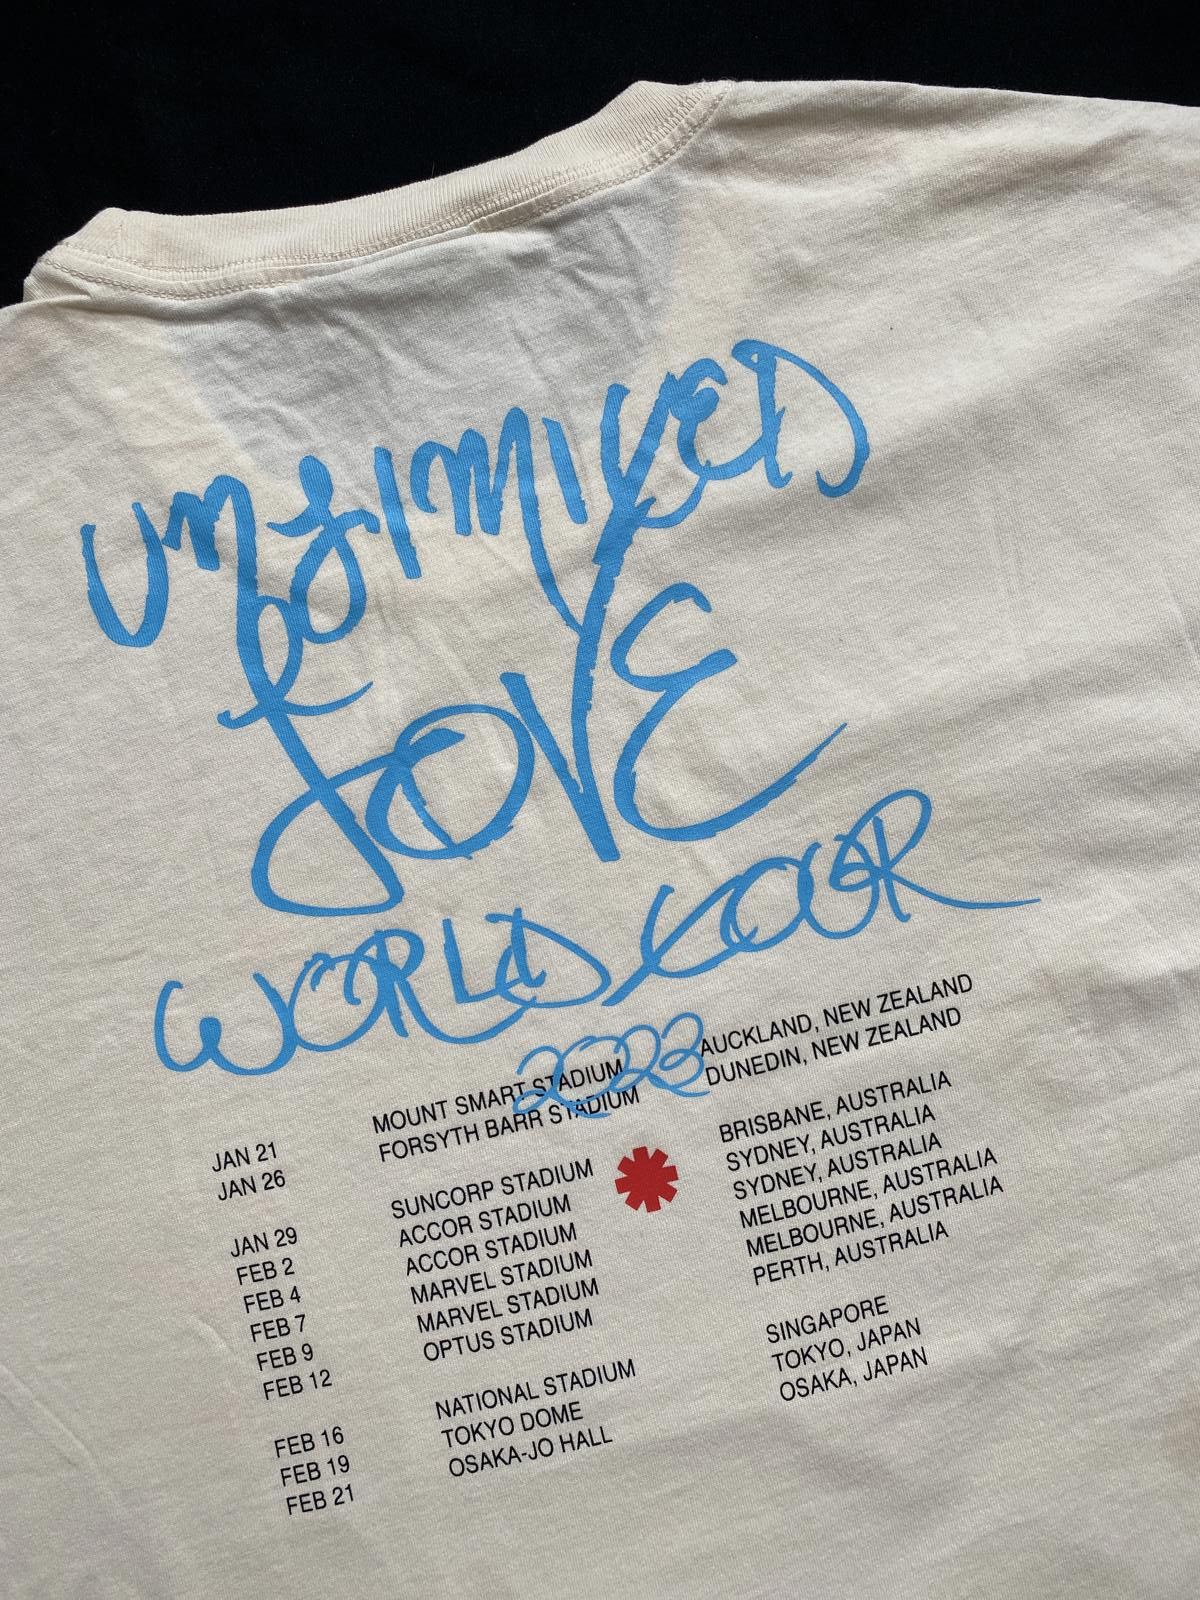 UNLIMITED
LOVE
WORLD TOUR
2023
JAN 21 MOUNT SMART STADIUM AUCKLAND, NEW ZEALAND
JAN 26 FORSYTH BARR STADIUM DUNEDIN, NEW ZEALAND
JAN 29 SUNCORP STADIUM BRISBANE, AUSTRALIA
FEB 2 ACCOR STADIUM SYDNEY, AUSTRALIA
FEB 4 ACCOR STADIUM SYDNEY, AUSTRALIA
FEB 7 MARVEL STADIUM MELBOURNE, AUSTRALIA
FEB 9 MARVEL STADIUM MELBOURNE, AUSTRALIA
FEB 12 OPTUS STADIUM PERTH, AUSTRALIA
FEB 16 NATIONAL STADIUM SINGAPORE
FEB 19 TOKYO DOME TOKYO, JAPAN
FEB 21 OSAKA-JO HALL OSAKA, JAPAN